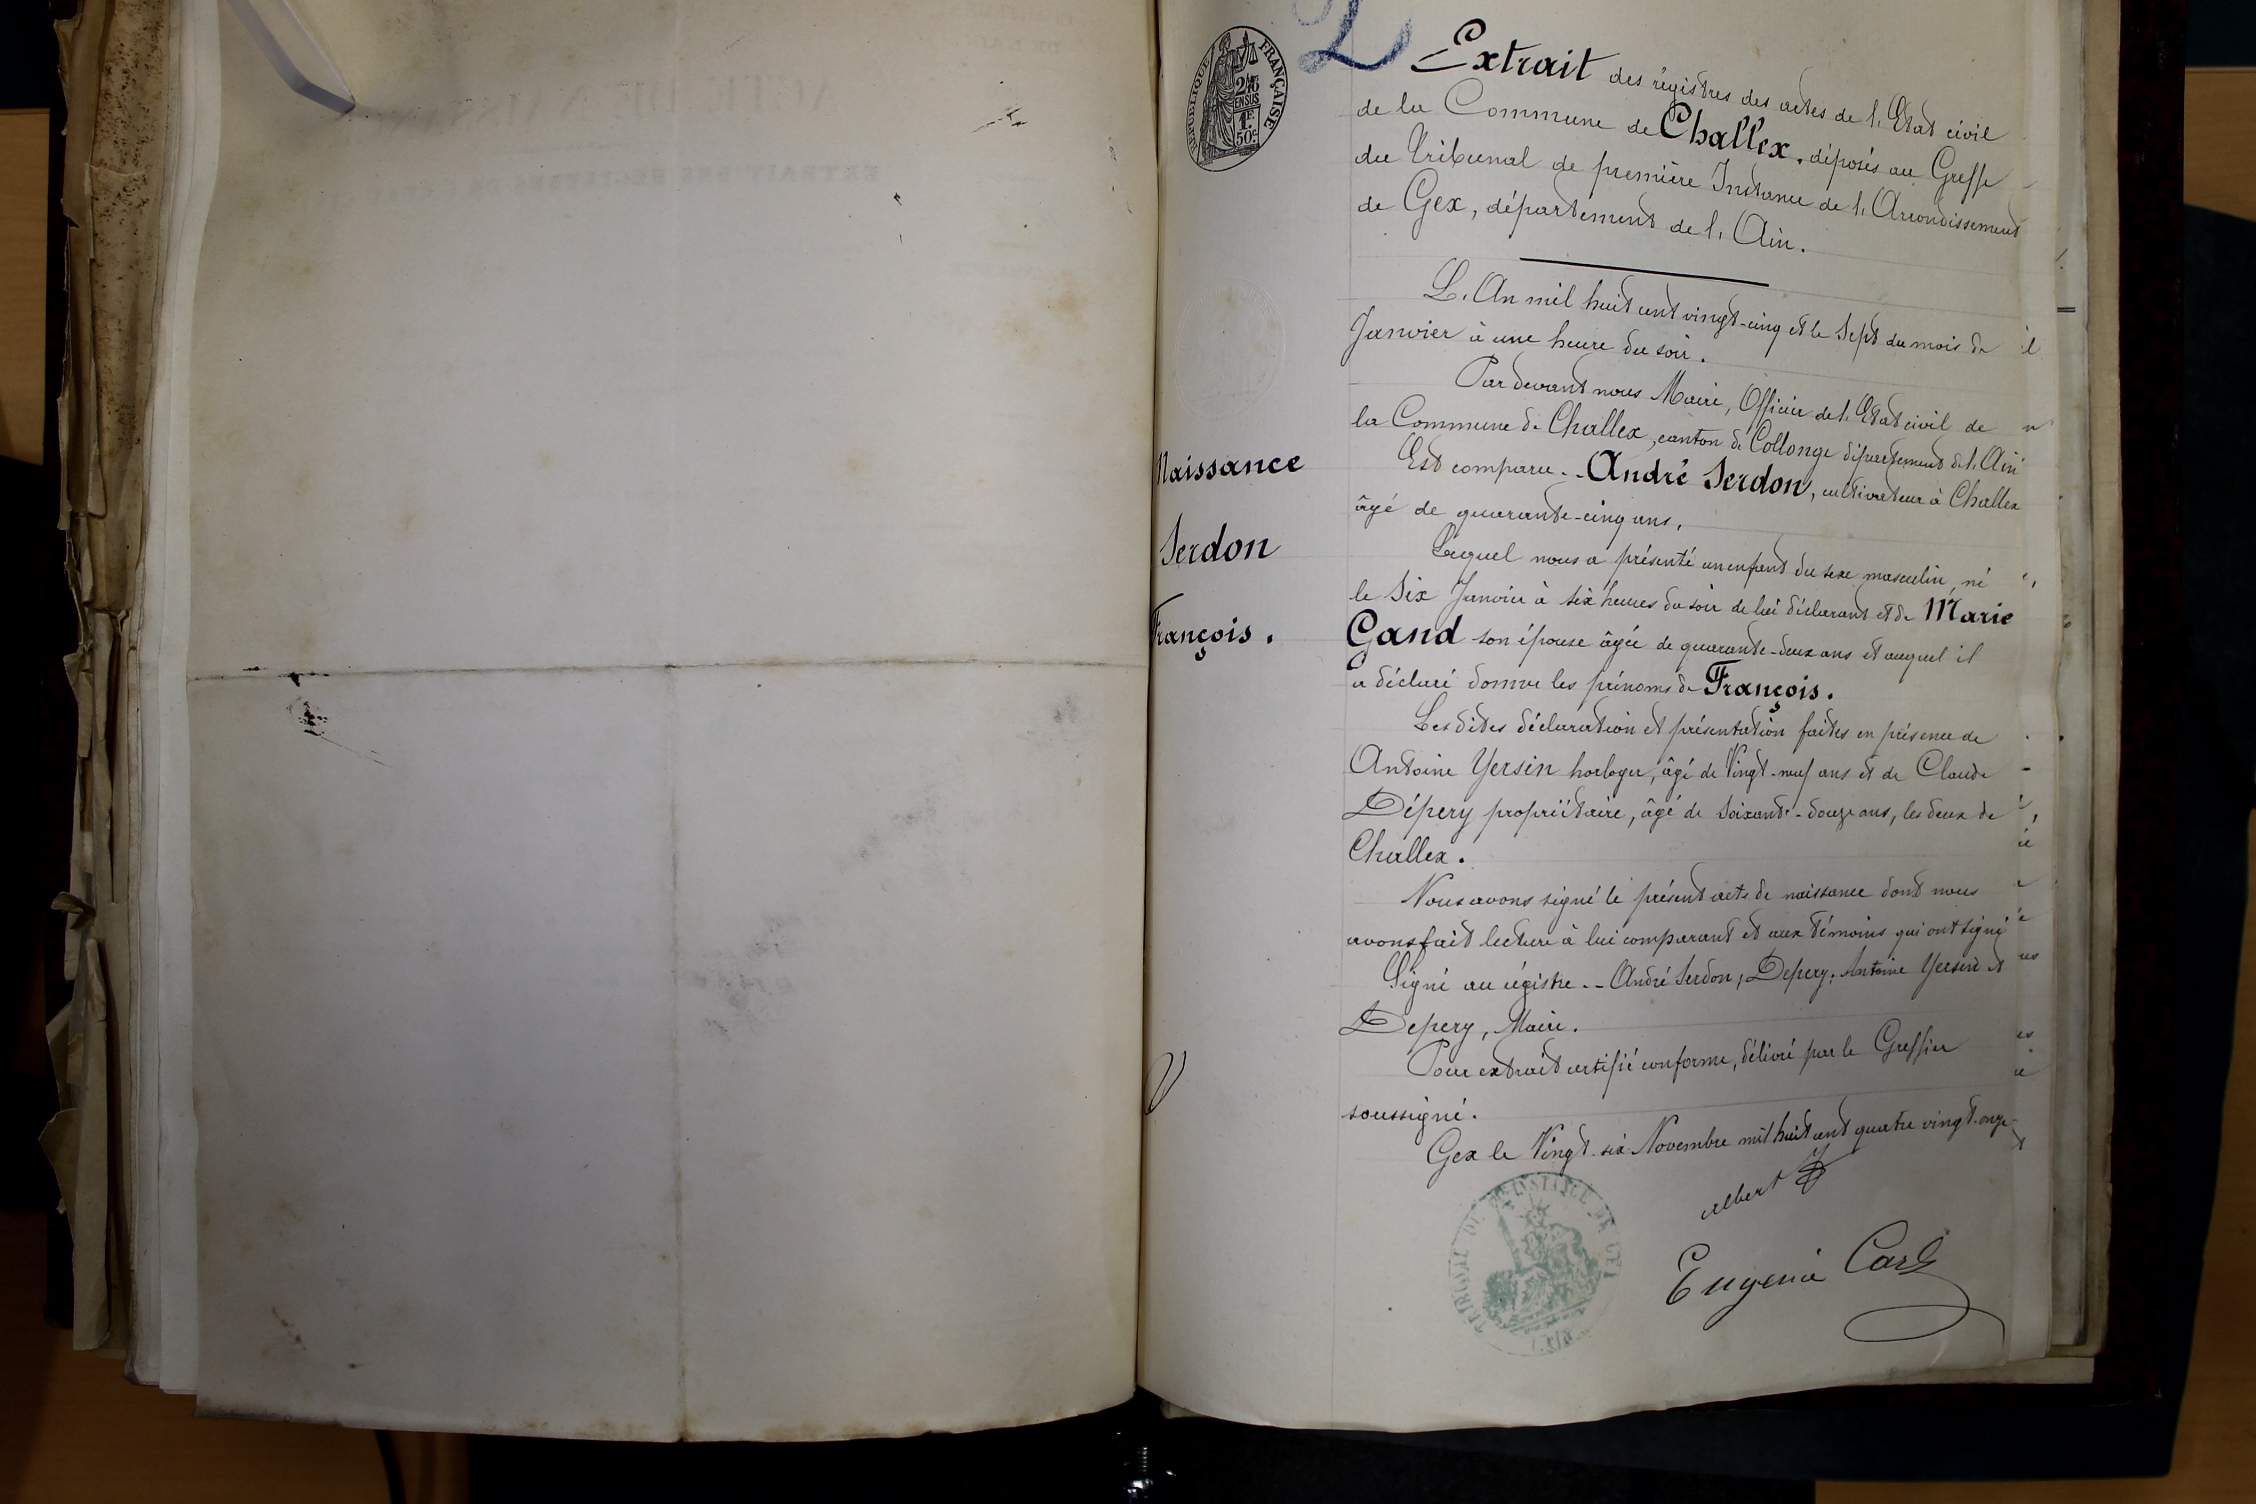 RÉPUBLIQUE FRANÇAISE
1F
50c
Extrait des régistres des actes de l'Etat civil
de la Commune de Challex, déposés au Greffe
du Tribunal de première Instance de l'Arrondissement
de Gex, département de l'Ain.
L'An mil huit cent vingt-cinq et le Sept du mois de
Janvier à une heure du soir.
Par devant nous Maire, Officier de l'Etat civil de
la Commune de Challex, canton de Collonge département de l'Ain
Est comparu. - André Serdon, cultivateur à Challex
âgé de quarante-cinq ans,
Lequel nous a présenté un enfant du sexe masculin, né
le Six Janvier à six heures du soir de lui déclarant et de Marie
Gand son épouse âgée de quarante-deux ans et auquel il
a déclaré donner les prénoms de François.
Les dites déclaration et présentation faites en présence de
Antoine Yersin horloger, âgé de Vingt-neuf ans et de Claude
Dépery propriétaire, âgé de Soixante-douze ans, les deux de
Challex.
Nous avons signé le présent acte de naissance dont nous
avons fait lecture à lui comparant et aux témoins qui ont signé
Signé au régistre. - André Serdon, Depery, Antoine Yersin et
Depery, Maire.
Pour extrait certifié conforme, délivré par le Greffier
soussigné.
Gex le Vingt-six Novembre mil huit cent quatre vingt-onze
albert
Eugenie
Naissance
Serdon
François.